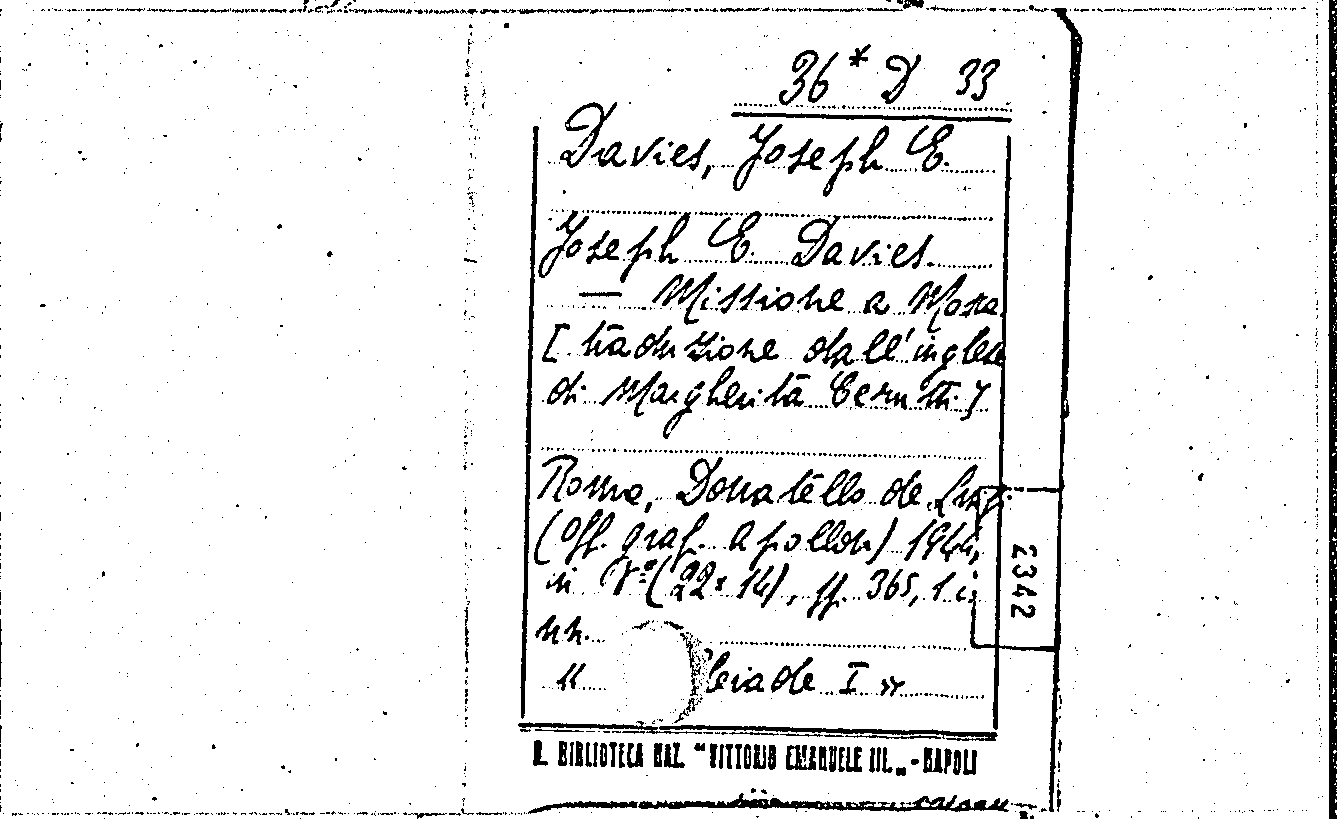 36* D 33
Davies, Joseph E.
Joseph E. Davies.
— Missione a Mosca
[ traduzione dall'inglese
di Margherita Cerutti ]
Roma, Donatello de Luigi
(Off. graf. Apollon) 1944,
in 8º (22x14), pp. 365, 1 c.
nn.
« leiade I »
2342
R. BIBLIOTECA NAZ. "VITTORIO EMANUELE III„ - NAPOLI